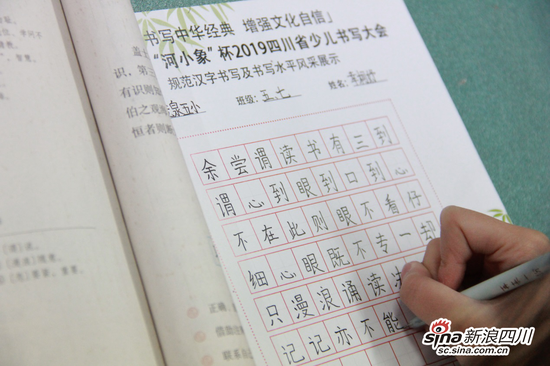 书写中华经典 增强文化自信」
“河小象”杯2019四川省少儿书写大会
规范汉字书写及书写水平风采展示
泉五小 班级: 五.七 姓名:
余尝谓读书有三到
谓心到眼到口到心
不在此则眼不看仔
细心眼既不专一却
只漫浪诵读决
记记亦不能
识,第三
有识则
伯之
恒者则
正确
借助
联系
sina新浪四川
sc.sina.com.cn